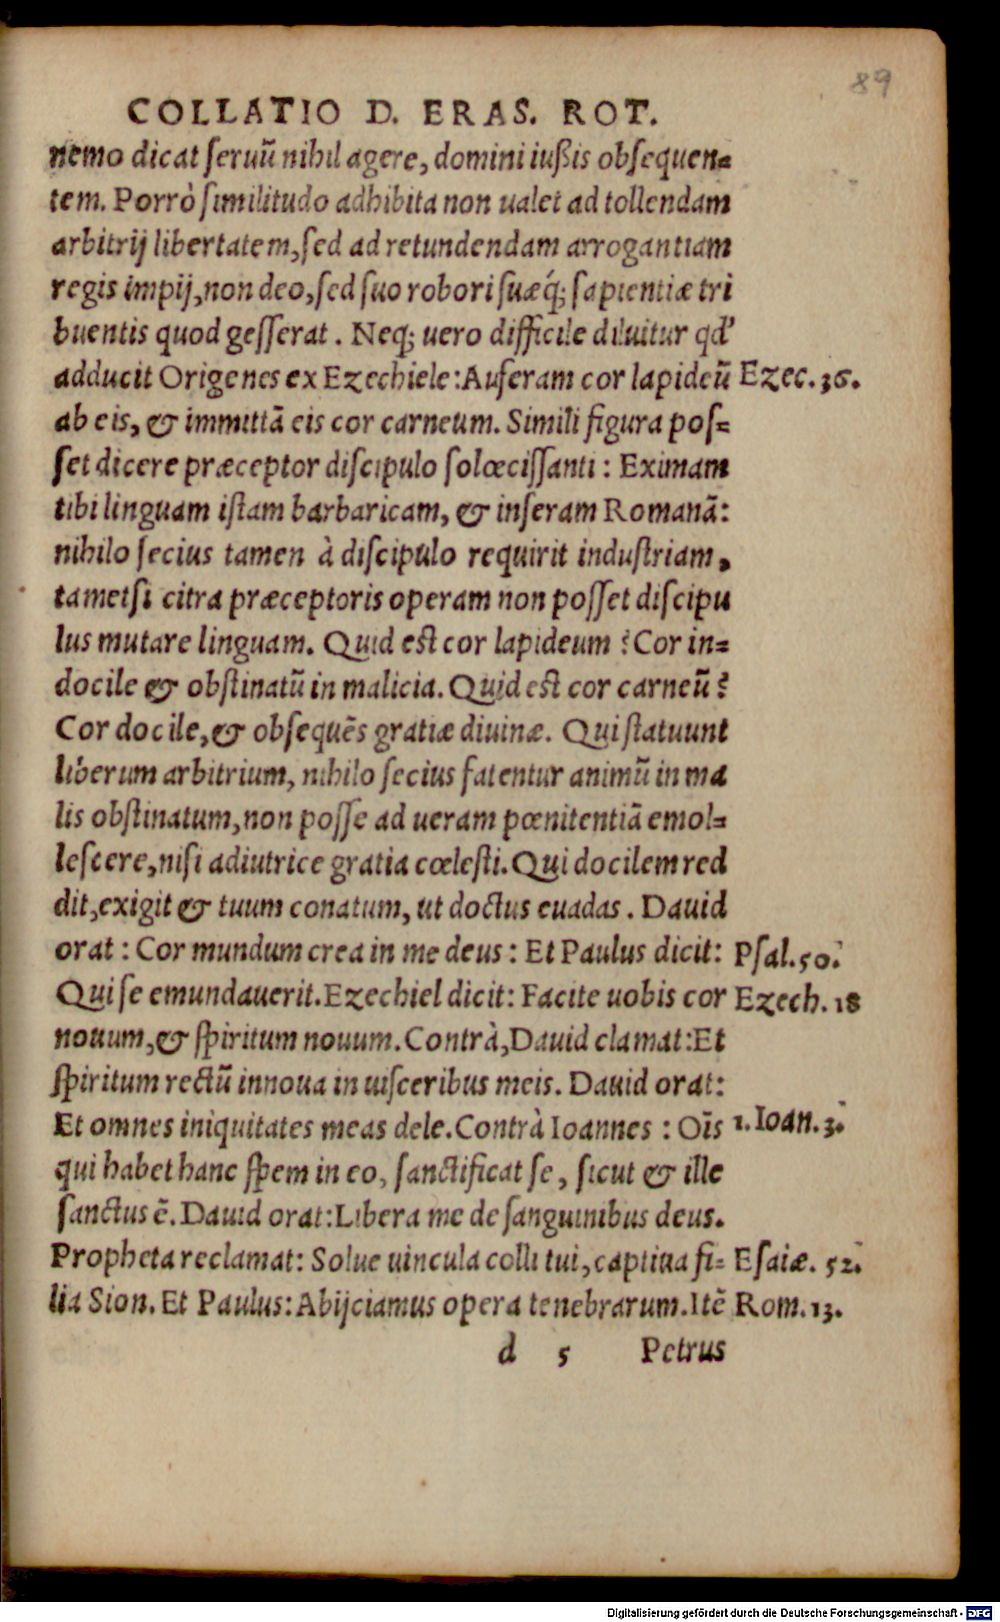 89
COLLATIO D. ERAS. ROT.
nemo dicat ſeruũ nihil agere, domini iußis obſequen=
tem. Porrò ſimilitudo adhibita non ualet ad tollendam
arbitrij libertatem, ſed ad retundendam arrogantiam
regis impij, non deo, ſed ſuo robori ſuæq́; ſapientiæ tri
buentis quod geſſerat. Neq; uero difficile diluitur qd'
adducit Origenes ex Ezechiele: Auferam cor lapideũ Ezec. 36.
ab eis, & immittã eis cor carneum. Simili figura poſ=
ſet dicere præceptor diſcipulo ſolœciſſanti: Eximam
tibi linguam iſtam barbaricam, & inſeram Romanã:
nihilo ſecius tamen à diſcipulo requirit induſtriam,
tametſi citra præceptoris operam non poſſet diſcipu
lus mutare linguam. Quid eſt cor lapideum? Cor in=
docile & obſtinatũ in malicia. Quid eſt cor carneũ?
Cor docile, & obſequẽs gratiæ diuinæ. Qui ſtatuunt
liberum arbitrium, nihilo ſecius fatentur animũ in ma
lis obſtinatum, non poſſe ad ueram pœnitentiã emol=
leſcere, niſi adiutrice gratia cœleſti. Qui docilem red
dit, exigit & tuum conatum, ut doctus euadas. Dauid
orat: Cor mundum crea in me deus: Et Paulus dicit: Pſal. 50.
Qui ſe emundauerit. Ezechiel dicit: Facite uobis cor Ezech. 18
nouum, & ſpiritum nouum. Contrà, Dauid clamat: Et
ſpiritum rectũ innoua in uiſceribus meis. Dauid orat:
Et omnes iniquitates meas dele. Contrà Ioannes: Oĩs 1. Ioan. 3.
qui habet hanc ſpem in eo, ſanctificat ſe, ſicut & ille
ſanctus ẽ. Dauid orat: Libera me de ſanguinibus deus.
Propheta reclamat: Solue uincula colli tui, captiua fi= Eſaiæ. 52.
lia Sion. Et Paulus: Abijciamus opera tenebrarum. Itẽ Rom. 13.
d 5 Petrus
Digitalisierung gefördert durch die Deutsche Forschungsgemeinschaft - DFG